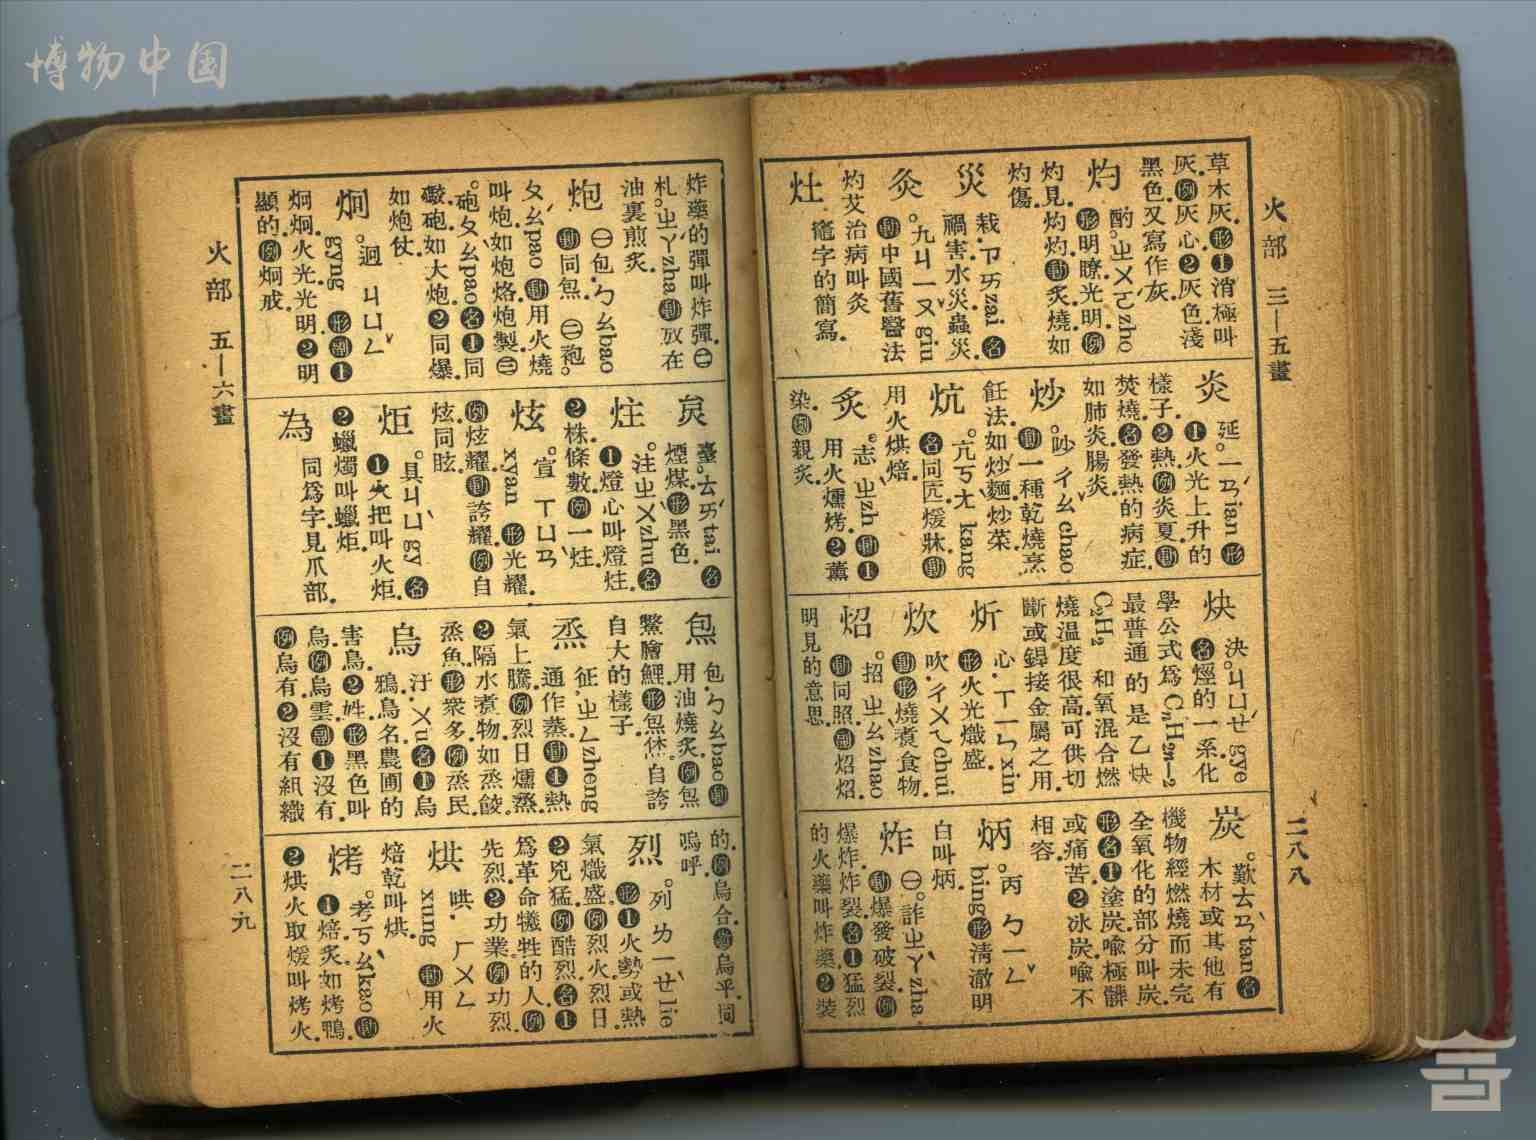 博物中国
火部 三—五畫
二八八
草木灰．形❶消極叫
灰．例灰心❷灰色淺
黑色．又寫作灰．
灼 酌。ㄓㄨㄛzho
形明瞭．光明．例
灼見．灼灼．動炙．燒．如
灼傷．
災 栽．ㄗㄞzai 名
禍害．水災．蟲災．
灸 。九ㄐㄧㄡˇgiu
動中國舊醫法
灼艾治病叫灸
灶 竈字的簡寫．
炎 延。ㄧㄢˊian 形
❶火光上升的
樣子．❷熱．例炎夏．動
焚燒．名發熱的病症．
如肺炎．腸炎．
炒 。吵ㄔㄠˇchao
動一種乾燒烹
飪法．如炒麵．炒菜
炕 。亢ㄎㄤˋkang
名同匟．煖牀．動
用火烘焙．
炙 。志ˋㄓzh 動❶
用火燻烤．❷薰
染．例親炙．
炔 決。ㄐㄩㄝˊgye
名烴的一系．化
學公式爲CnH2n—2
最普通的是乙炔
C2H2 和氧混合燃
燒溫度很高．可供切
斷或銲接金屬之用．
炘 心．ㄒㄧㄣxin
形火光熾盛．
炊 吹．ㄔㄨㄟchui
動形燒煮食物．
炤 。招ㄓㄠzhao
動同照．副炤炤．
明見的意思．
炭 。歎ㄊㄢˋtan名
木材或其他有
機物經燃燒而未完
全氧化的部分叫炭．
形名❶塗炭．喩極髒
或痛苦．❷冰炭．喩不
相容．
炳 。丙 ㄅㄧㄥˇ
bing形清澈明
白叫炳．
炸 ㊀。詐ㄓㄚˋzha
動爆發破裂．例
爆炸．炸裂．名❶猛烈
的火藥叫炸藥．❷裝
火部 五—六畫
二八九
炸藥的彈叫炸彈．㊁
札。ㄓㄚˊzha動放在
油裏煎炙．
炮 ㊀包．ㄅㄠbao
動同炰．㊁袍。
ㄆㄠˊpao動用火燒
叫炮．如炮烙．炮製．㊂
。砲ㄆㄠˋpao名❶同
礮．砲．如大炮．❷同爆．
如炮仗．
炯 。迥 ㄐㄩㄥˇ
gyng 形副❶
炯炯．火光光明．❷明
顯的．例炯戒．
炱 臺。ㄊㄞˊtai 名
煙煤．形黑色．
炷 。注ㄓㄨˋzhu名
❶燈心叫燈炷．
❷株．條數．例一炷．
炫 。宣 ㄒㄩㄢˋ
xyan 形光耀．
例炫耀．動誇耀．例自
炫同眩．
炬 。具ㄐㄩˋgy 名
❶火把叫火炬．
❷蠟燭叫蠟炬．
為 同爲字．見爪部．
炰 包．ㄅㄠbao動
用油燒炙．例炰
鱉膾鯉．形炰烋．自誇
自大的樣子．
烝 征．ㄓㄥzheng
通作蒸．動❶熱
氣上騰．例烈日燻烝．
❷隔水煮物．如烝餕
烝魚．形衆多．例烝民．
烏 汙．ㄨu名❶烏
鴉．鳥名．農圃的
害鳥．❷姓．形黑色叫
烏．例烏雲．副❶沒有．
例烏有．❷沒有組織
的．例烏合．歎烏乎．同
嗚呼．
烈 。列ㄌㄧㄝˋlie
形❶火勢或熱
氣熾盛．例烈火．烈日．
❷兇猛．例酷烈．名❶
爲革命犧牲的人．例
先烈．❷功業．例功烈．
烘 哄．ㄏㄨㄥ
xung 動用火
焙乾叫烘．
烤 。考ㄎㄠˇkao動
❶焙．炙．如烤鴨．
❷烘火取煖叫烤火．